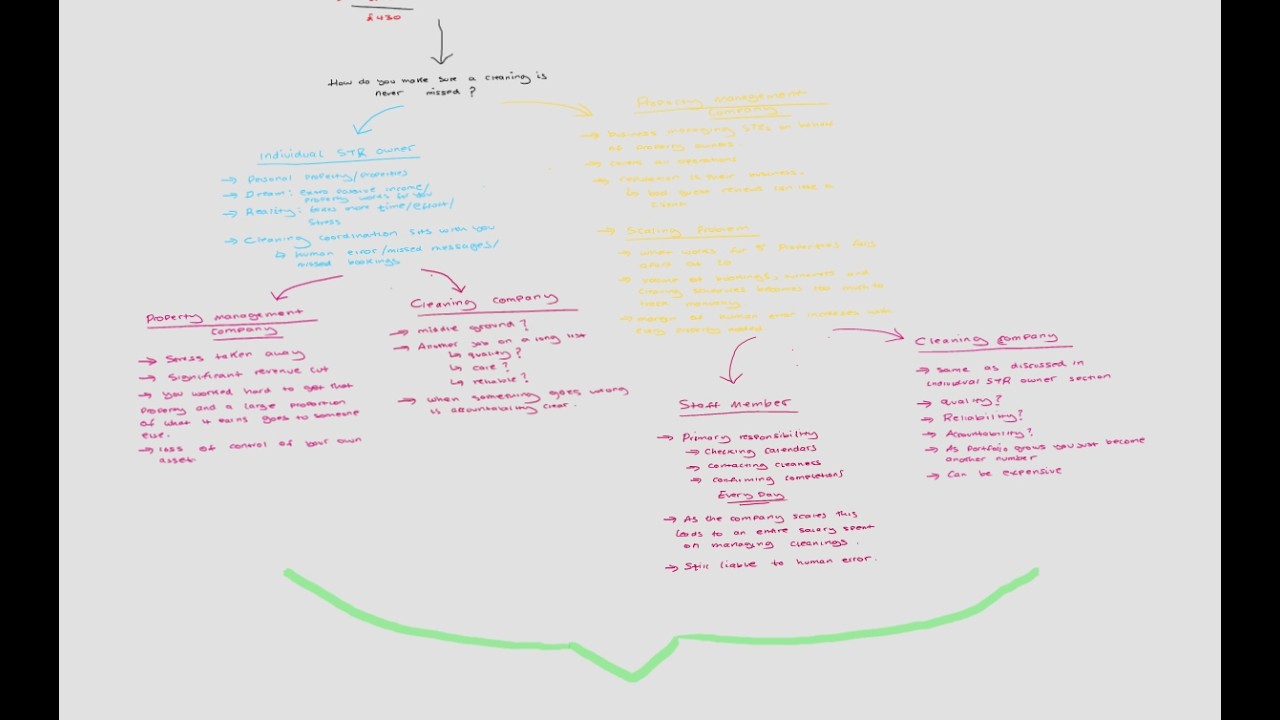 £430
How do you make sure a cleaning is
never missed?
Individual STR owner
→ Personal property/properties
→ Dream: extra passive income/
property works for you
→ Reality: takes more time/effort/
stress
→ Cleaning coordination sits with you
↳ human error/missed messages/
missed bookings
Property management
company
→ Stress taken away
→ Significant revenue cut
→ you worked hard to get that
property and a large proportion
of what it earns goes to someone
else.
→ loss of control of your own
asset
Cleaning company
→ middle ground?
→ Another job on a long list
↳ quality?
↳ care?
↳ reliable?
→ when something goes wrong
is accountability clear.
Property management
company
→ business managing STRs on behalf
of property owners.
→ covers all operations
→ reputation is their business.
↳ one worst reviews can lose a
client
→ Scaling problem
→ what works for 5 properties
→ volume of bookings, turnovers and
cleaning becomes too much to
track manually
→ margin of human error increases with
every property added
Staff Member
→ Primary responsibility
→ Checking calendars
→ contacting cleaners
→ confirming completions
Every Day
→ As the company scales this
leads to an entire salary spent
on managing cleanings.
→ Still liable to human error.
Cleaning company
→ same as discussed in
individual STR owner section
→ quality?
→ Reliability?
→ Accountability?
→ As portfolio grows you just become
another number
→ Can be expensive